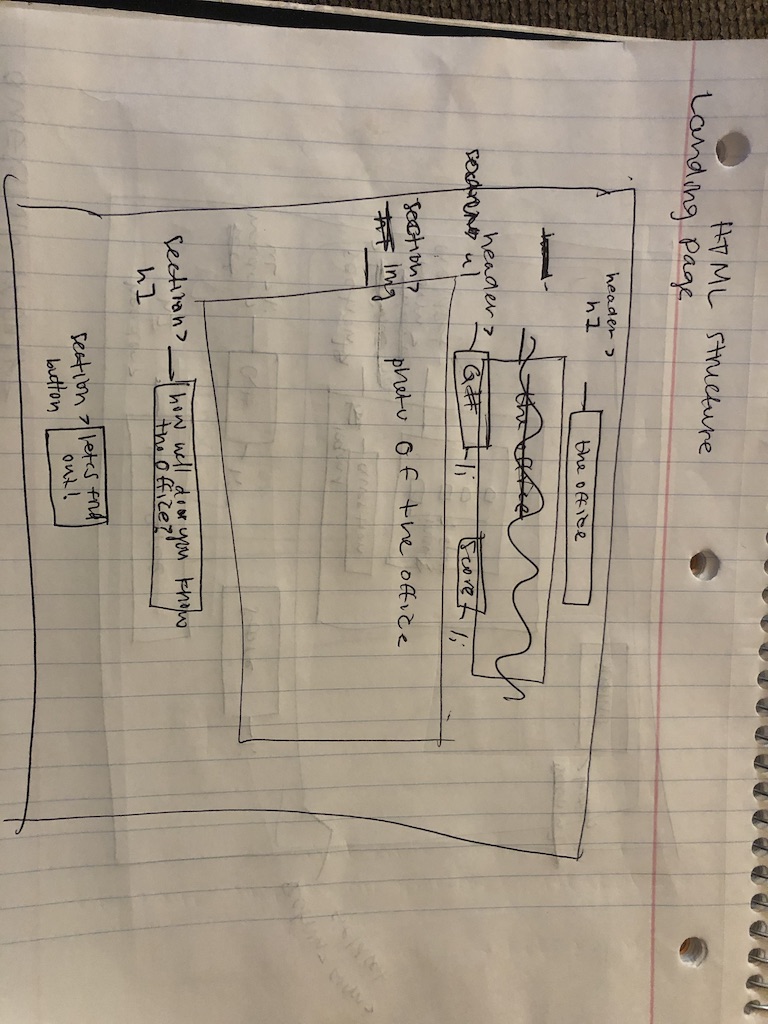 HTML structure
Landing page
header >
h1
the office
header >
ul
Q#
li
score
li
section >
img
photo of the office
section >
h1
how well do you know
the office?
section >
button
let's find
out!